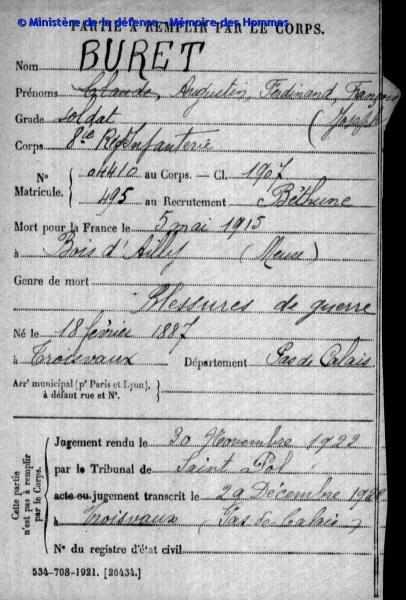 © Ministère de la défense - Mémoire des Hommes
PARTIE À REMPLIR PAR LE CORPS.
Nom BURET
Prénoms Claude, Augustin, Ferdinand, François
Grade soldat (Joseph)
Corps 8e Rgt Infanterie
N° Matricule. { 04410 au Corps. — Cl. 1907
495 au Recrutement Béthune
Mort pour la France le 5 mai 1915
à Bois d'Ailly (Meuse)
Genre de mort
Blessures de guerre
Né le 18 février 1887
à Troisvaux Département Pas de Calais
Arrt municipal (pr Paris et Lyon),
à défaut rue et N°.
Cette partie n'est pas à remplir par le Corps.
Jugement rendu le 30 Novembre 1922
par le Tribunal de Saint Pol
acte ou jugement transcrit le 29 Décembre 1922
à Troisvaux (Pas de Calais)
N° du registre d'état civil
534-708-1921. [26434.]